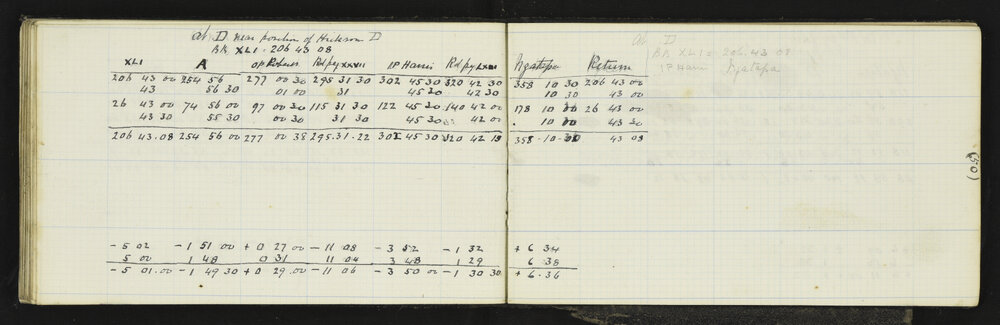 At D near position of Hickson D
BR XLI · 206 43 08
At D
BR XLI = 206.43 08
IP Harris Ngatapa
XLI A OP Rd peg XXVII IP Harris Rd peg LXIII Ngatapa Return
206 43 00 254 56 277 00 30 295 31 30 302 45 30 320 42 30 358 10 30 206 43 00
43 56 30 01 00 31 45 30 42 30 10 30 43 00
26 43 00 74 56 00 97 00 30 115 31 30 122 45 30 140 42 00 178 10 00 26 43 00
43 30 55 30 00 30 31 30 45 30 42 00 10 00 43 30
206 43.08 254 56 00 277 00 38 295.31.22 302 45 30 320 42 15 358.10 43 08
(50)
- 5 02 - 1 51 00 + 0 27 00 - 11 08 - 3 52 - 1 32 + 6 34
5 00 1 48 0 31 11 04 3 48 1 29 6 38
- 5 01.00 - 1 49 30 + 0 29.00 - 11 06 - 3 50 00 - 1 30 30 + 6.36